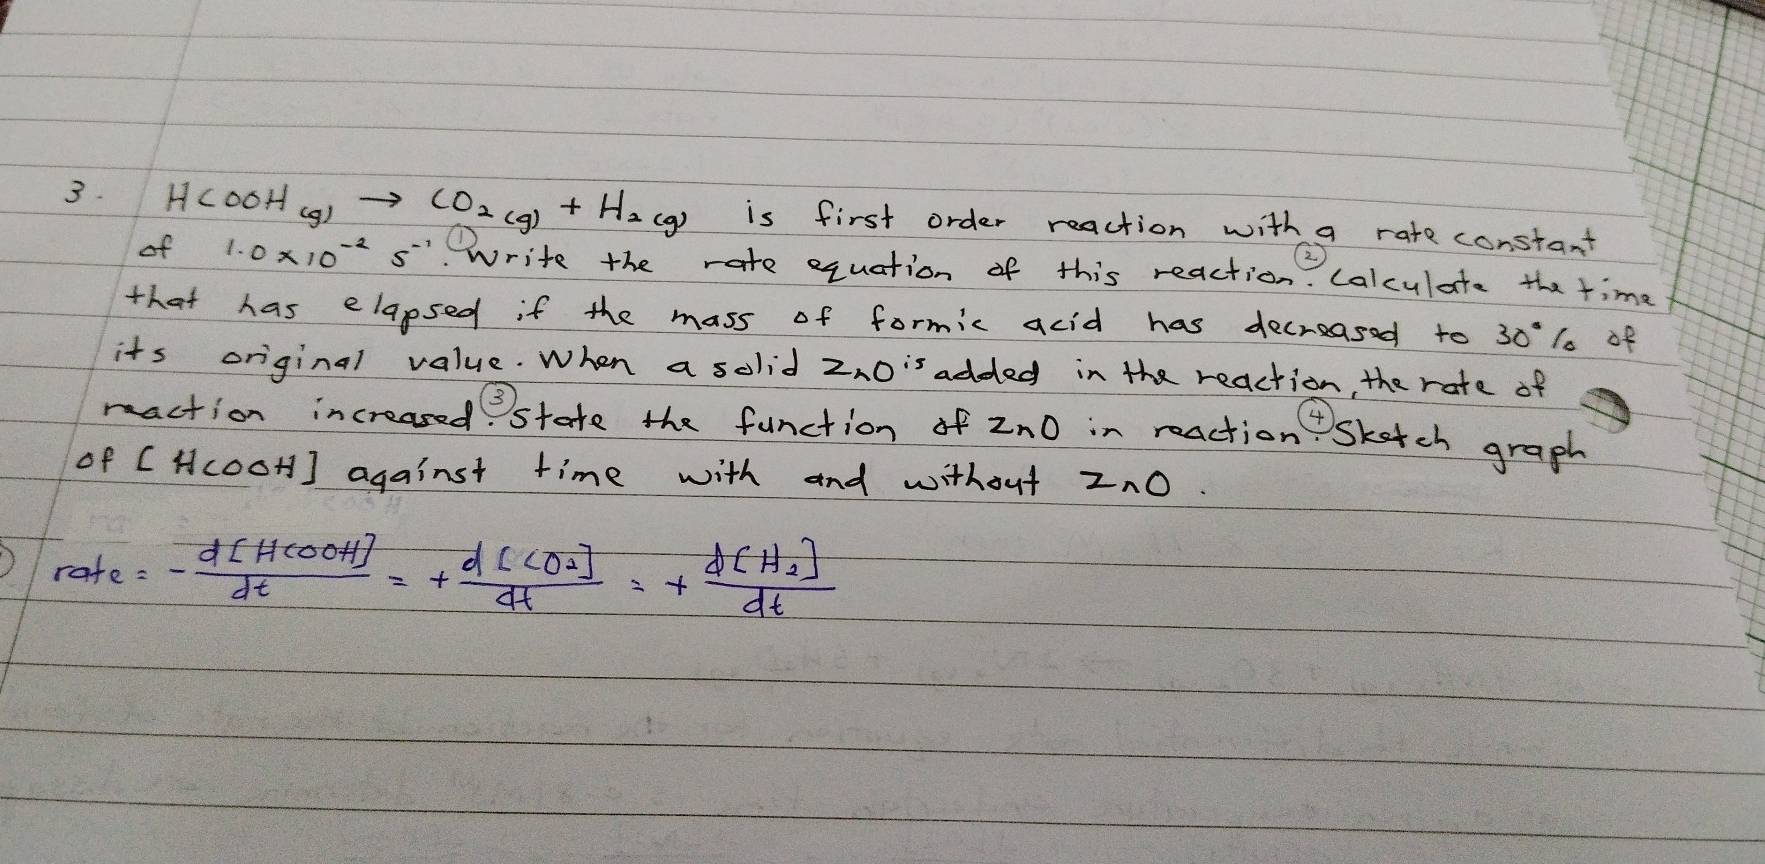 3. HCOOH (g) → CO₂ (g) + H₂ (g) is first order reaction with a rate constant
of 1.0 × 10⁻² s⁻¹. ① Write the rate equation of this reaction. ② Calculate the time
that has elapsed if the mass of formic acid has decreased to 30% of
its original value. When a solid ZnO is added in the reaction, the rate of
reaction increased. ③ State the function of ZnO in reaction. ④ Sketch graph
of [HCOOH] against time with and without ZnO.
rate = - d[HCOOH]/dt = + d[CO₂]/dt = + d[H₂]/dt